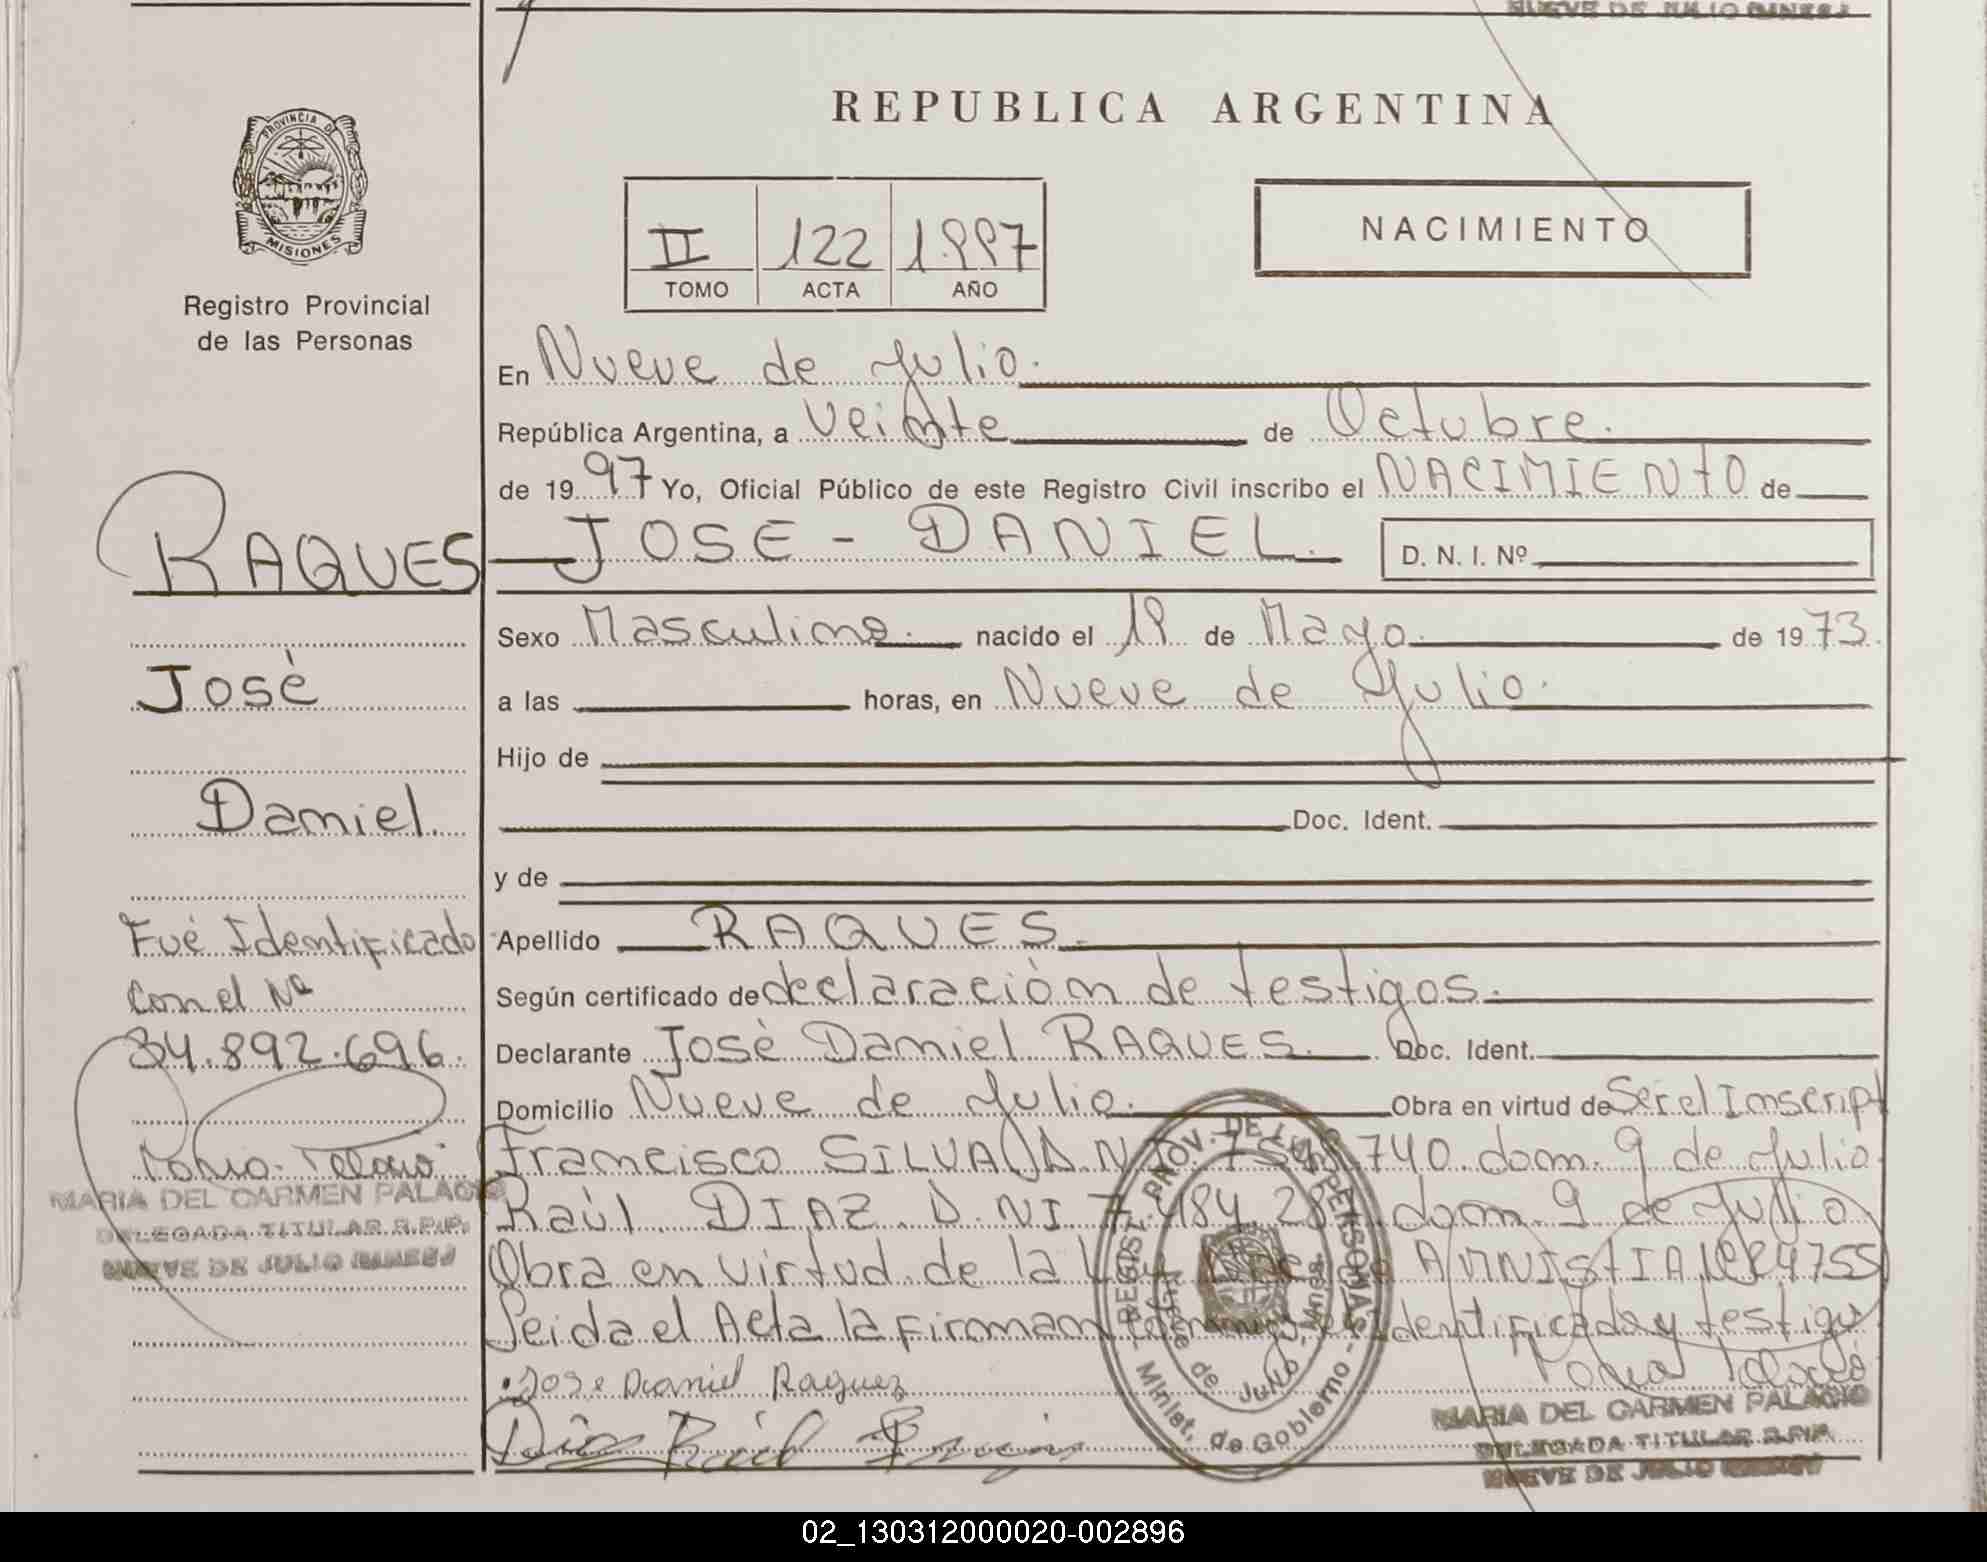 NUEVE DE JULIO (MNES.)
REPUBLICA ARGENTINA
PROVINCIA DE
MISIONES
Registro Provincial
de las Personas
II 122 1997
TOMO ACTA AÑO
NACIMIENTO
En Nueve de Julio.
República Argentina, a veinte de Octubre.
de 1997 Yo, Oficial Público de este Registro Civil inscribo el NACIMIENTO de
JOSE - DANIEL.
D. N. I. Nº
Sexo Masculino. nacido el 19 de Mayo. de 1973.
a las horas, en Nueve de Julio.
Hijo de
Doc. Ident.
y de
Apellido RAQUES.
Según certificado de declaraciòn de testigos.
Declarante Josè Daniel RAQUES. Doc. Ident.
Domicilio Nueve de Julio. Obra en virtud de Ser el Inscript
Francisco SILVA D.N.I. 740. dom. 9 de Julio.
Raùl DIAZ D.NI 7.484.28 dom. 9 de Julio
Obra en virtud de la Ley de AMNISTIA 24755
Leida el Acta la firman conmigo el identificado y testigo
Jose Daniel Raquez
Diaz Raúl
MARIA DEL CARMEN PALACIO
DELEGADA TITULAR R.P.P.
NUEVE DE JULIO (MNES.)
REGIST. PROV. DE LAS PERSONAS
Nueve de Julio - Mnes.
Minist. de Gobierno
RAQUES
Josè
Daniel.
Fuè Identificado
con el Nº
34.892.696.
MARIA DEL CARMEN PALACIO
DELEGADA TITULAR R.P.P.
NUEVE DE JULIO (MNES.)
02_130312000020-002896